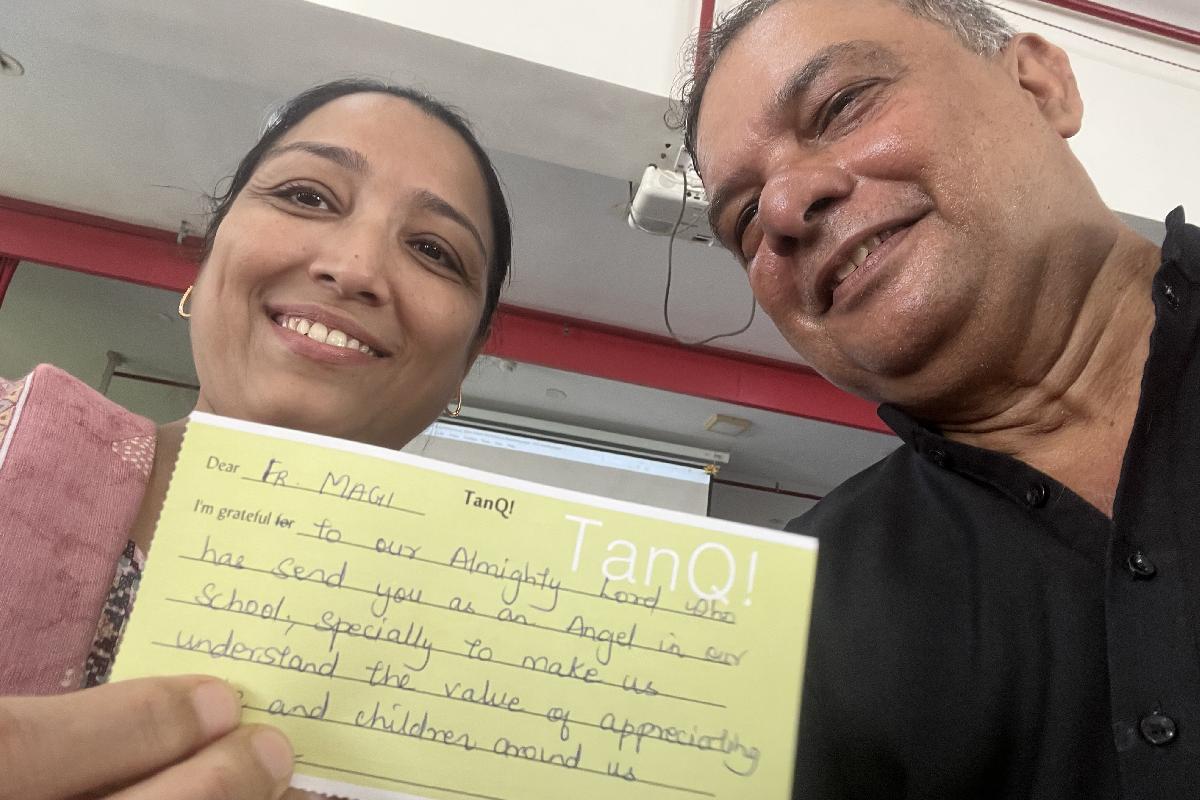 Dear FR. MAGI TanQ!
TanQ!
I'm grateful for to our Almighty Lord who
has send you as an Angel in our
School, specially to make us
understand the value of appreciating
and children around us